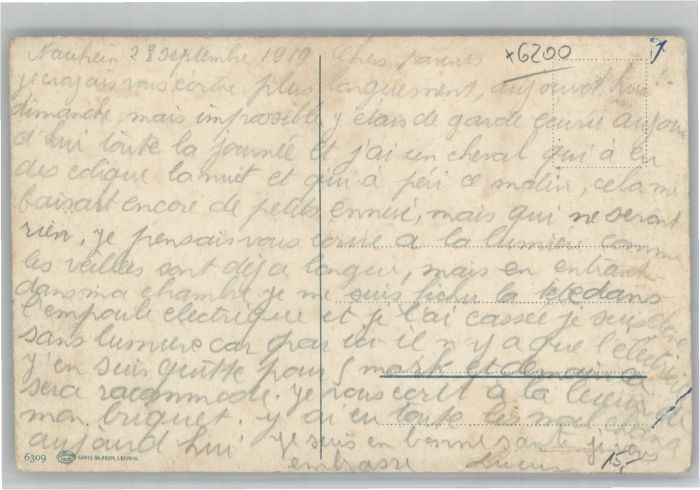 Nauhein 28 Septembre 1919 Chers parents
je croyais vous écrire plus longuement, aujourd'hui
dimanche, mais impossible y étais de garde écurie aujour
d'hui toute la journée et j'ai un cheval qui à eu
des colique la nuit et qui à péri ce matin, cela me
faisait encore de petits ennui, mais qui ne seront
rien, je pensais vous écrire a la lumière comme
les veilles sont déja longue, mais en entrant
dans ma chambre je me suis fichu la tete dans
l'empoule electrique et je l'ai cassée je suis donc
sans lumiere car par ici il n'y a que l'electricite
y'en suis quitte pour 5 mark et demain ca
sera racommode. je vous ecrit à la lueur de
mon briquet. y ai eu toute les
aujourd'hui je suis en bonne santé je vous
embrasse Lucien
x6200
15,-
6309 LOUIS GLASER, LEIPZIG.